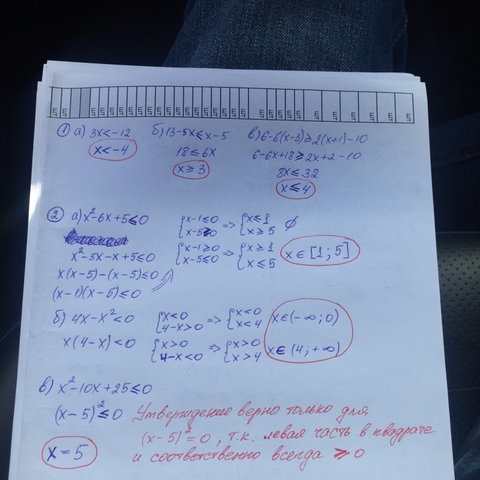 ① а) 3x<-12 б) 13-5x≤x-5 в) 6-6(x-3)≥2(x+1)-10
x<-4 18≤6x 6-6x+18≥2x+2-10
x≥3 8x≤32
x≤4
② а) x²-6x+5≤0 {x-1≤0 x-5≥0 => {x≤1 x≥5 ∅
x²-5x-x+5≤0 {x-1≥0 x-5≤0 => {x≥1 x≤5 x∈[1;5]
x(x-5)-(x-5)≤0
(x-1)(x-5)≤0
б) 4x-x²<0 {x<0 4-x>0 => {x<0 x<4 x∈(-∞;0)
x(4-x)<0 {x>0 4-x<0 => {x>0 x>4 x∈(4;+∞)
в) x²-10x+25≤0
(x-5)²≤0 Утверждение верно только для
(x-5)²=0, т.к. левая часть в квадрате
x=5 и соответственно всегда ≥0